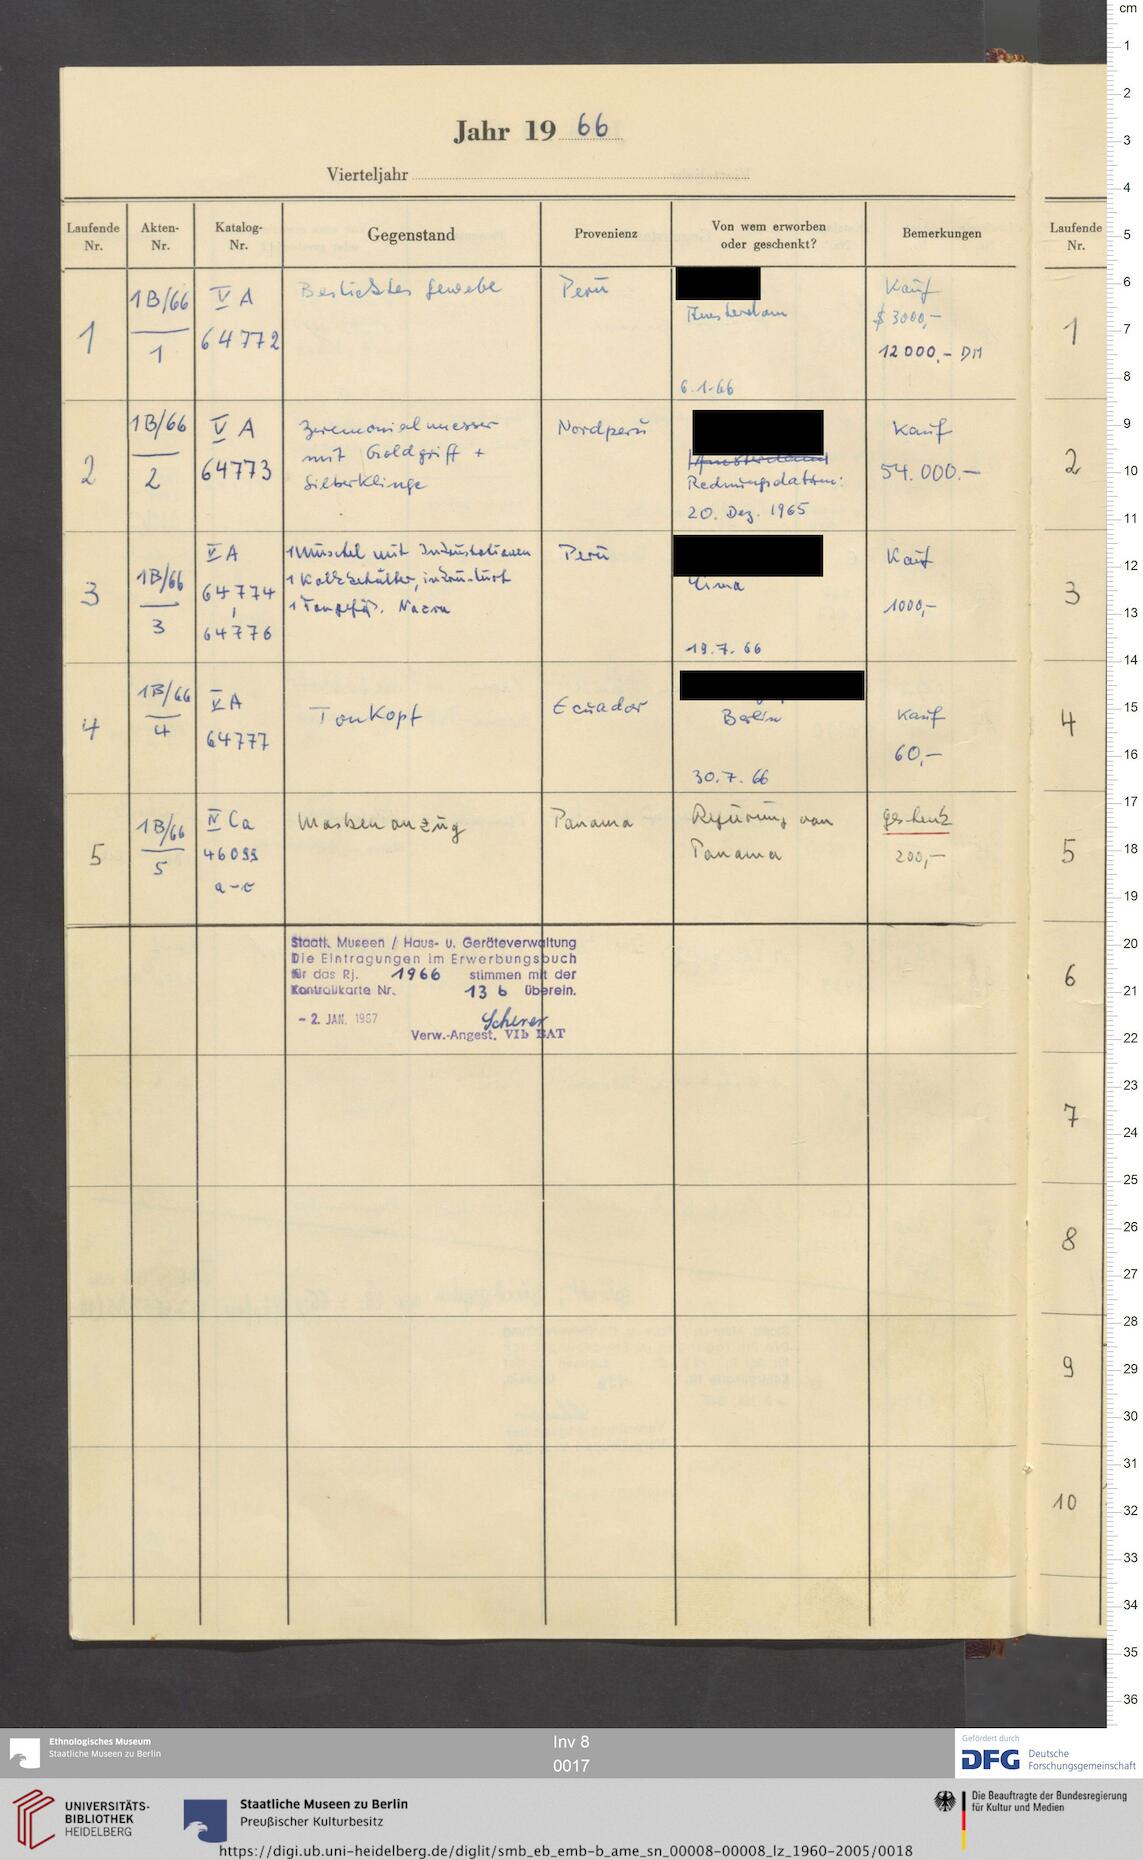 Jahr 19 66
Vierteljahr
Laufende Nr.
Akten-Nr.
Katalog-Nr.
Gegenstand
Provenienz
Von wem erworben oder geschenkt?
Bemerkungen
Laufende Nr.
1
1B/66
1
V A
64772
Besticktes Gewebe
Peru
Amsterdam
6.1.66
Kauf
$ 3000,-
12000,- DM
1
2
1B/66
2
V A
64773
Zeremonialmesser
mit Goldgriff +
Silberklinge
Nordperu
Amsterdam
Rechnungsdatum:
20. Dez. 1965
Kauf
54.000.-
2
3
1B/66
3
V A
64774
64776
1 Muschel mit Inkrustationen
1 Kalkbehälter, inkrustiert
1 Tongefäß. Nazca
Peru
Lima
19.7.66
Kauf
1000,-
3
4
1B/66
4
V A
64777
Tonkopf
Ecuador
Berlin
30.7.66
Kauf
60,-
4
5
1B/66
5
IV Ca
46099
a-c
Maskenanzug
Panama
Regierung von
Panama
Geschenk
200,-
5
Staatl. Museen / Haus- u. Geräteverwaltung
Die Eintragungen im Erwerbungsbuch
für das Rj. 1966 stimmen mit der
Kontrollkarte Nr. 13 b überein.
- 2. JAN. 1967
Scherer
Verw.-Angest. VIb BAT
6
7
8
9
10
cm
1
2
3
4
5
6
7
8
9
10
11
12
13
14
15
16
17
18
19
20
21
22
23
24
25
26
27
28
29
30
31
32
33
34
35
36
Ethnologisches Museum
Staatliche Museen zu Berlin
Inv 8
0017
Gefördert durch
DFG Deutsche
Forschungsgemeinschaft
UNIVERSITÄTS-
BIBLIOTHEK
HEIDELBERG
Staatliche Museen zu Berlin
Preußischer Kulturbesitz
Die Beauftragte der Bundesregierung
für Kultur und Medien
https://digi.ub.uni-heidelberg.de/diglit/smb_eb_emb-b_ame_sn_00008-00008_lz_1960-2005/0018